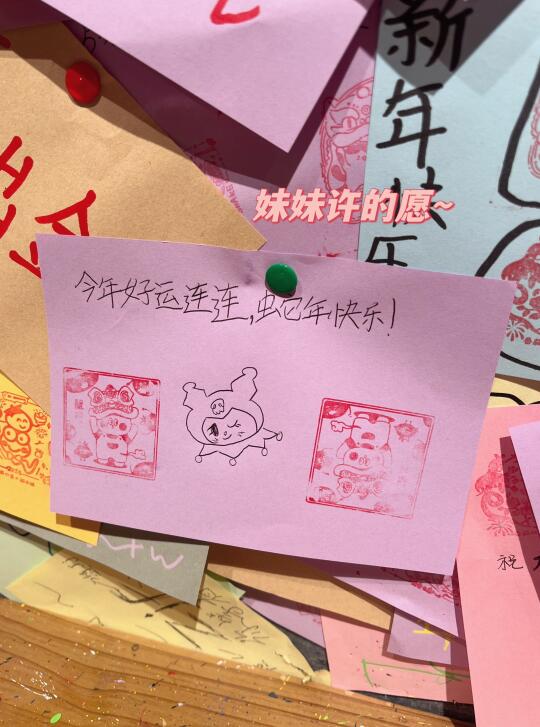 新年快乐
妹妹许的愿~
今年好运连连,蛇年快乐!
祝